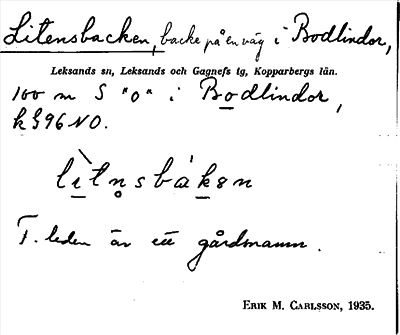 Litensbacken, backe på en väg i Bodlindor,
Leksands sn, Leksands och Gagnefs tg, Kopparbergs län.
100 m S "o" i Bodlindor,
k § 96 NO.
lìtn̥sbákən
F. leden är ett gårdsnamn.
ERIK M. CARLSSON, 1935.